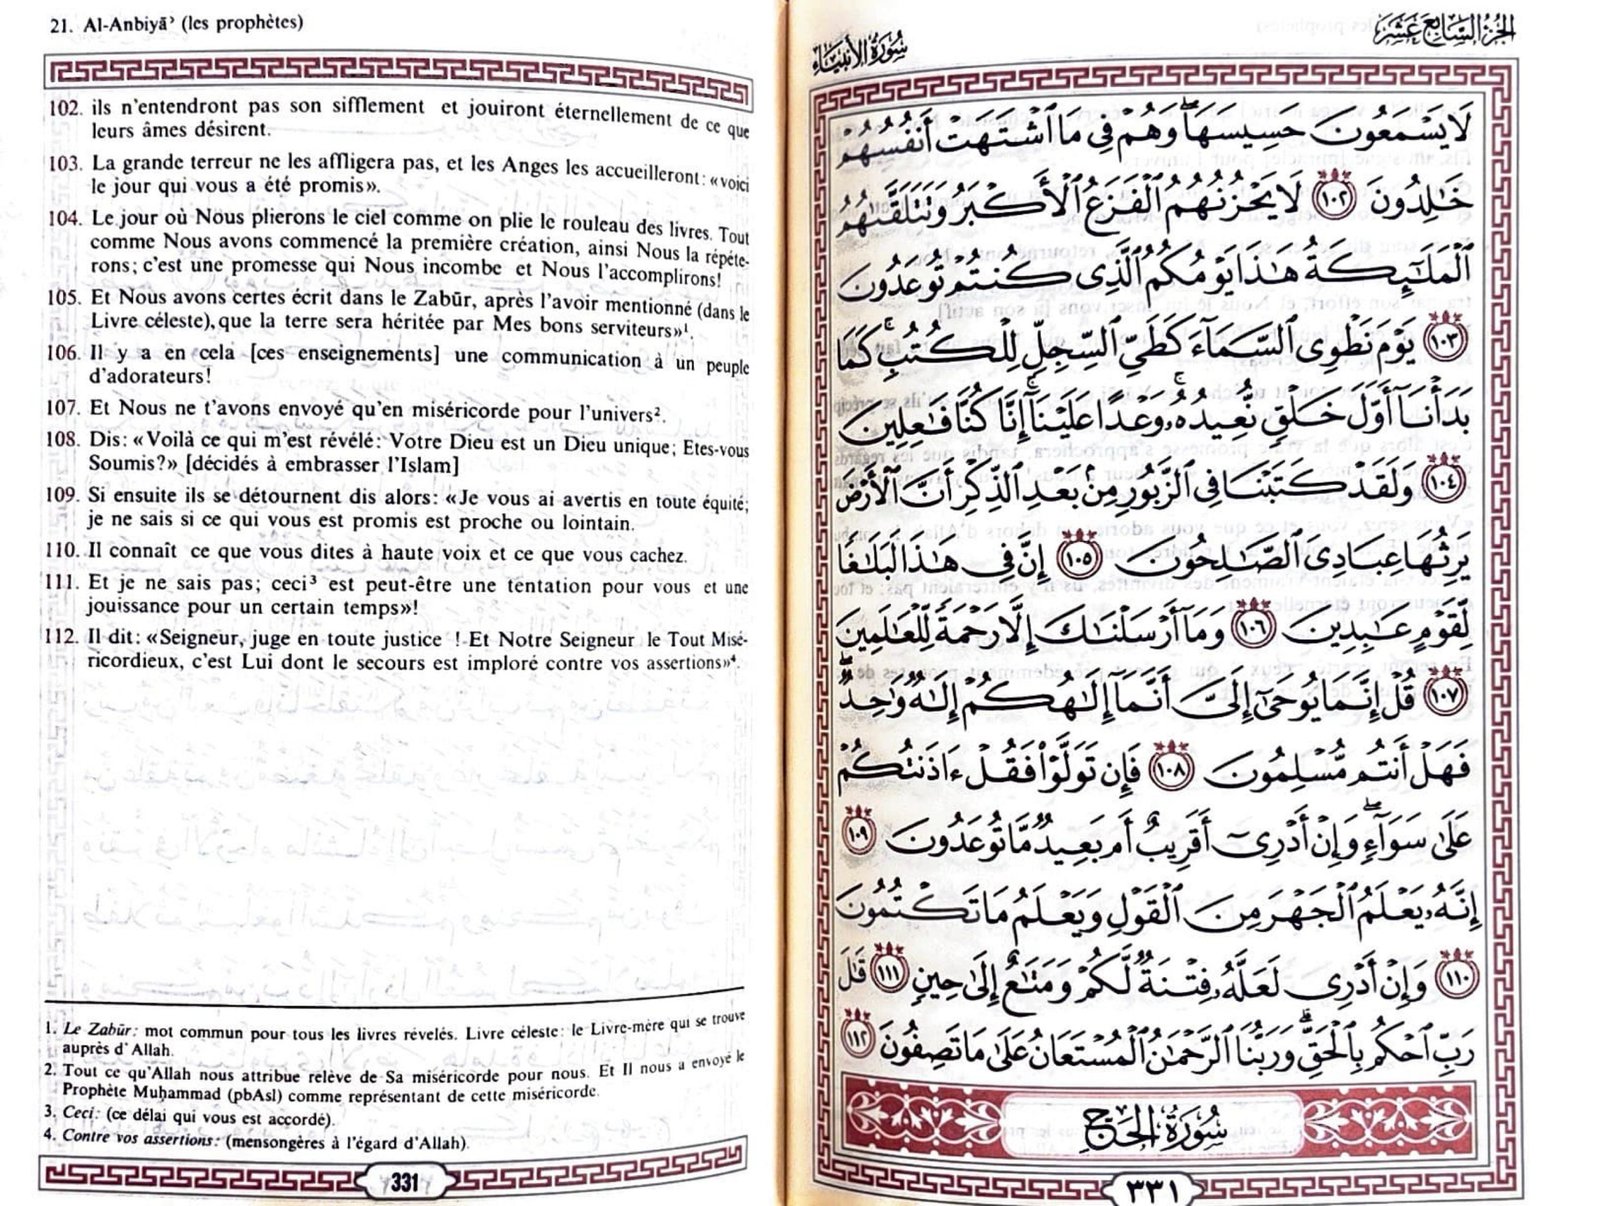 21. Al-Anbiyāʾ (les prophètes)
102. ils n'entendront pas son sifflement et jouiront éternellement de ce que
leurs âmes désirent.
103. La grande terreur ne les affligera pas, et les Anges les accueilleront: «voici
le jour qui vous a été promis».
104. Le jour où Nous plierons le ciel comme on plie le rouleau des livres. Tout
comme Nous avons commencé la première création, ainsi Nous la répéte-
rons; c'est une promesse qui Nous incombe et Nous l'accomplirons!
105. Et Nous avons certes écrit dans le Zabūr, après l'avoir mentionné (dans le
Livre céleste), que la terre sera héritée par Mes bons serviteurs»¹.
106. Il y a en cela [ces enseignements] une communication à un peuple
d'adorateurs!
107. Et Nous ne t'avons envoyé qu'en miséricorde pour l'univers².
108. Dis: «Voilà ce qui m'est révélé: Votre Dieu est un Dieu unique; Etes-vous
Soumis?» [décidés à embrasser l'Islam]
109. Si ensuite ils se détournent dis alors: «Je vous ai avertis en toute équité;
je ne sais si ce qui vous est promis est proche ou lointain.
110. Il connaît ce que vous dites à haute voix et ce que vous cachez.
111. Et je ne sais pas; ceci³ est peut-être une tentation pour vous et une
jouissance pour un certain temps»!
112. Il dit: «Seigneur, juge en toute justice ! Et Notre Seigneur le Tout Misé-
ricordieux, c'est Lui dont le secours est imploré contre vos assertions»⁴.
1. Le Zabūr: mot commun pour tous les livres révelés. Livre céleste: le Livre-mère qui se trouve
auprès d'Allah.
2. Tout ce qu'Allah nous attribue relève de Sa miséricorde pour nous. Et Il nous a envoyé le
Prophète Muḥammad (pbAsl) comme représentant de cette miséricorde.
3. Ceci: (ce délai qui vous est accordé).
4. Contre vos assertions: (mensongères à l'égard d'Allah).
331
الجزء السابع عشر
سورة الأنبياء
لَا يَسْمَعُونَ حَسِيسَهَا ۖ وَهُمْ فِي مَا ٱشْتَهَتْ أَنفُسُهُمْ
خَٰلِدُونَ ١٠٢ لَا يَحْزُنُهُمُ ٱلْفَزَعُ ٱلْأَكْبَرُ وَتَتَلَقَّىٰهُمُ
ٱلْمَلَٰٓئِكَةُ هَٰذَا يَوْمُكُمُ ٱلَّذِى كُنتُمْ تُوعَدُونَ
١٠٣ يَوْمَ نَطْوِى ٱلسَّمَآءَ كَطَىِّ ٱلسِّجِلِّ لِلْكُتُبِ ۚ كَمَا
بَدَأْنَآ أَوَّلَ خَلْقٍ نُّعِيدُهُۥ ۚ وَعْدًا عَلَيْنَآ ۚ إِنَّا كُنَّا فَٰعِلِينَ
١٠٤ وَلَقَدْ كَتَبْنَا فِى ٱلزَّبُورِ مِنۢ بَعْدِ ٱلذِّكْرِ أَنَّ ٱلْأَرْضَ
يَرِثُهَا عِبَادِىَ ٱلصَّٰلِحُونَ ١٠٥ إِنَّ فِى هَٰذَا لَبَلَٰغًا
لِّقَوْمٍ عَٰبِدِينَ ١٠٦ وَمَآ أَرْسَلْنَٰكَ إِلَّا رَحْمَةً لِّلْعَٰلَمِينَ
١٠٧ قُلْ إِنَّمَا يُوحَىٰٓ إِلَىَّ أَنَّمَآ إِلَٰهُكُمْ إِلَٰهٌ وَٰحِدٌ ۖ
فَهَلْ أَنتُم مُّسْلِمُونَ ١٠٨ فَإِن تَوَلَّوْا۟ فَقُلْ ءَاذَنتُكُمْ
عَلَىٰ سَوَآءٍ ۖ وَإِنْ أَدْرِىٓ أَقَرِيبٌ أَم بَعِيدٌ مَّا تُوعَدُونَ ١٠٩
إِنَّهُۥ يَعْلَمُ ٱلْجَهْرَ مِنَ ٱلْقَوْلِ وَيَعْلَمُ مَا تَكْتُمُونَ
١١٠ وَإِنْ أَدْرِى لَعَلَّهُۥ فِتْنَةٌ لَّكُمْ وَمَتَٰعٌ إِلَىٰ حِينٍ ١١١ قَٰلَ
رَبِّ ٱحْكُم بِٱلْحَقِّ ۗ وَرَبُّنَا ٱلرَّحْمَٰنُ ٱلْمُسْتَعَانُ عَلَىٰ مَا تَصِفُونَ ١١٢
سورة الحج
٣٣١